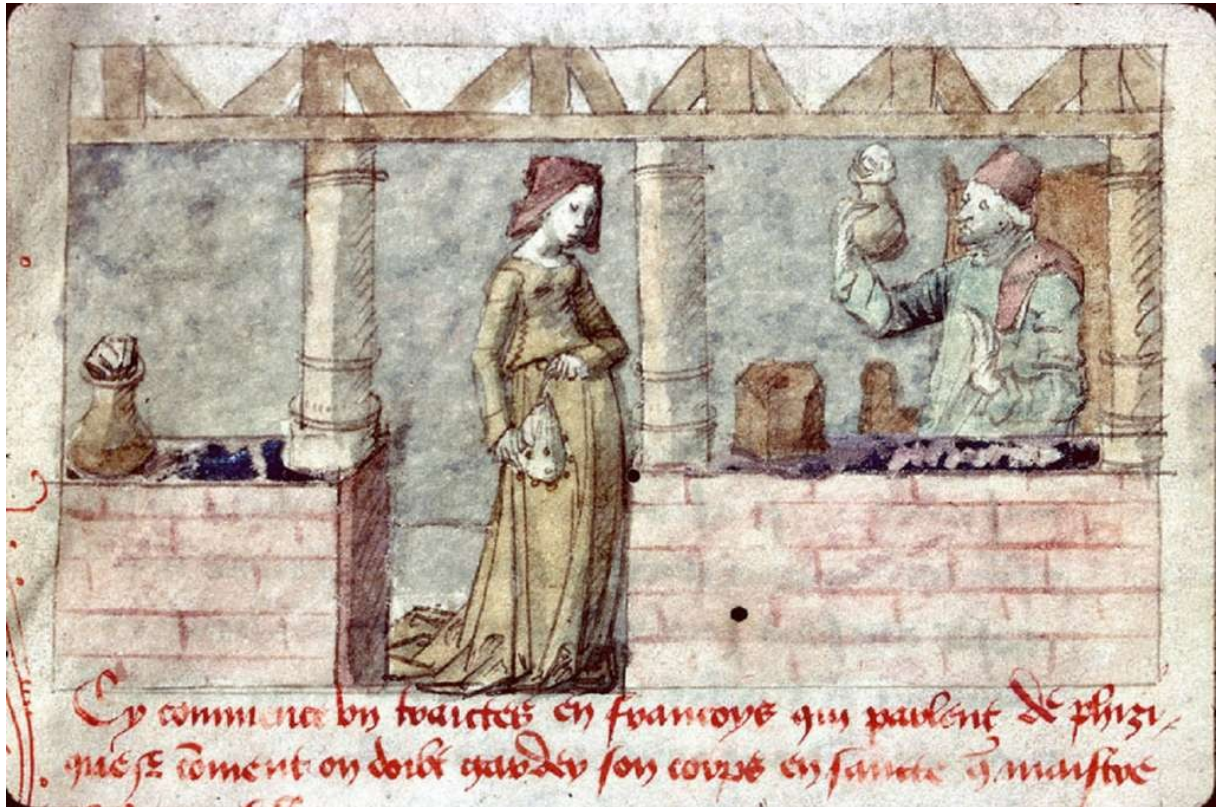 Cy commence un traictes en francoys qui parlent de phizi-
que et coment on doibt garder son corps en sancte q̄ maistre